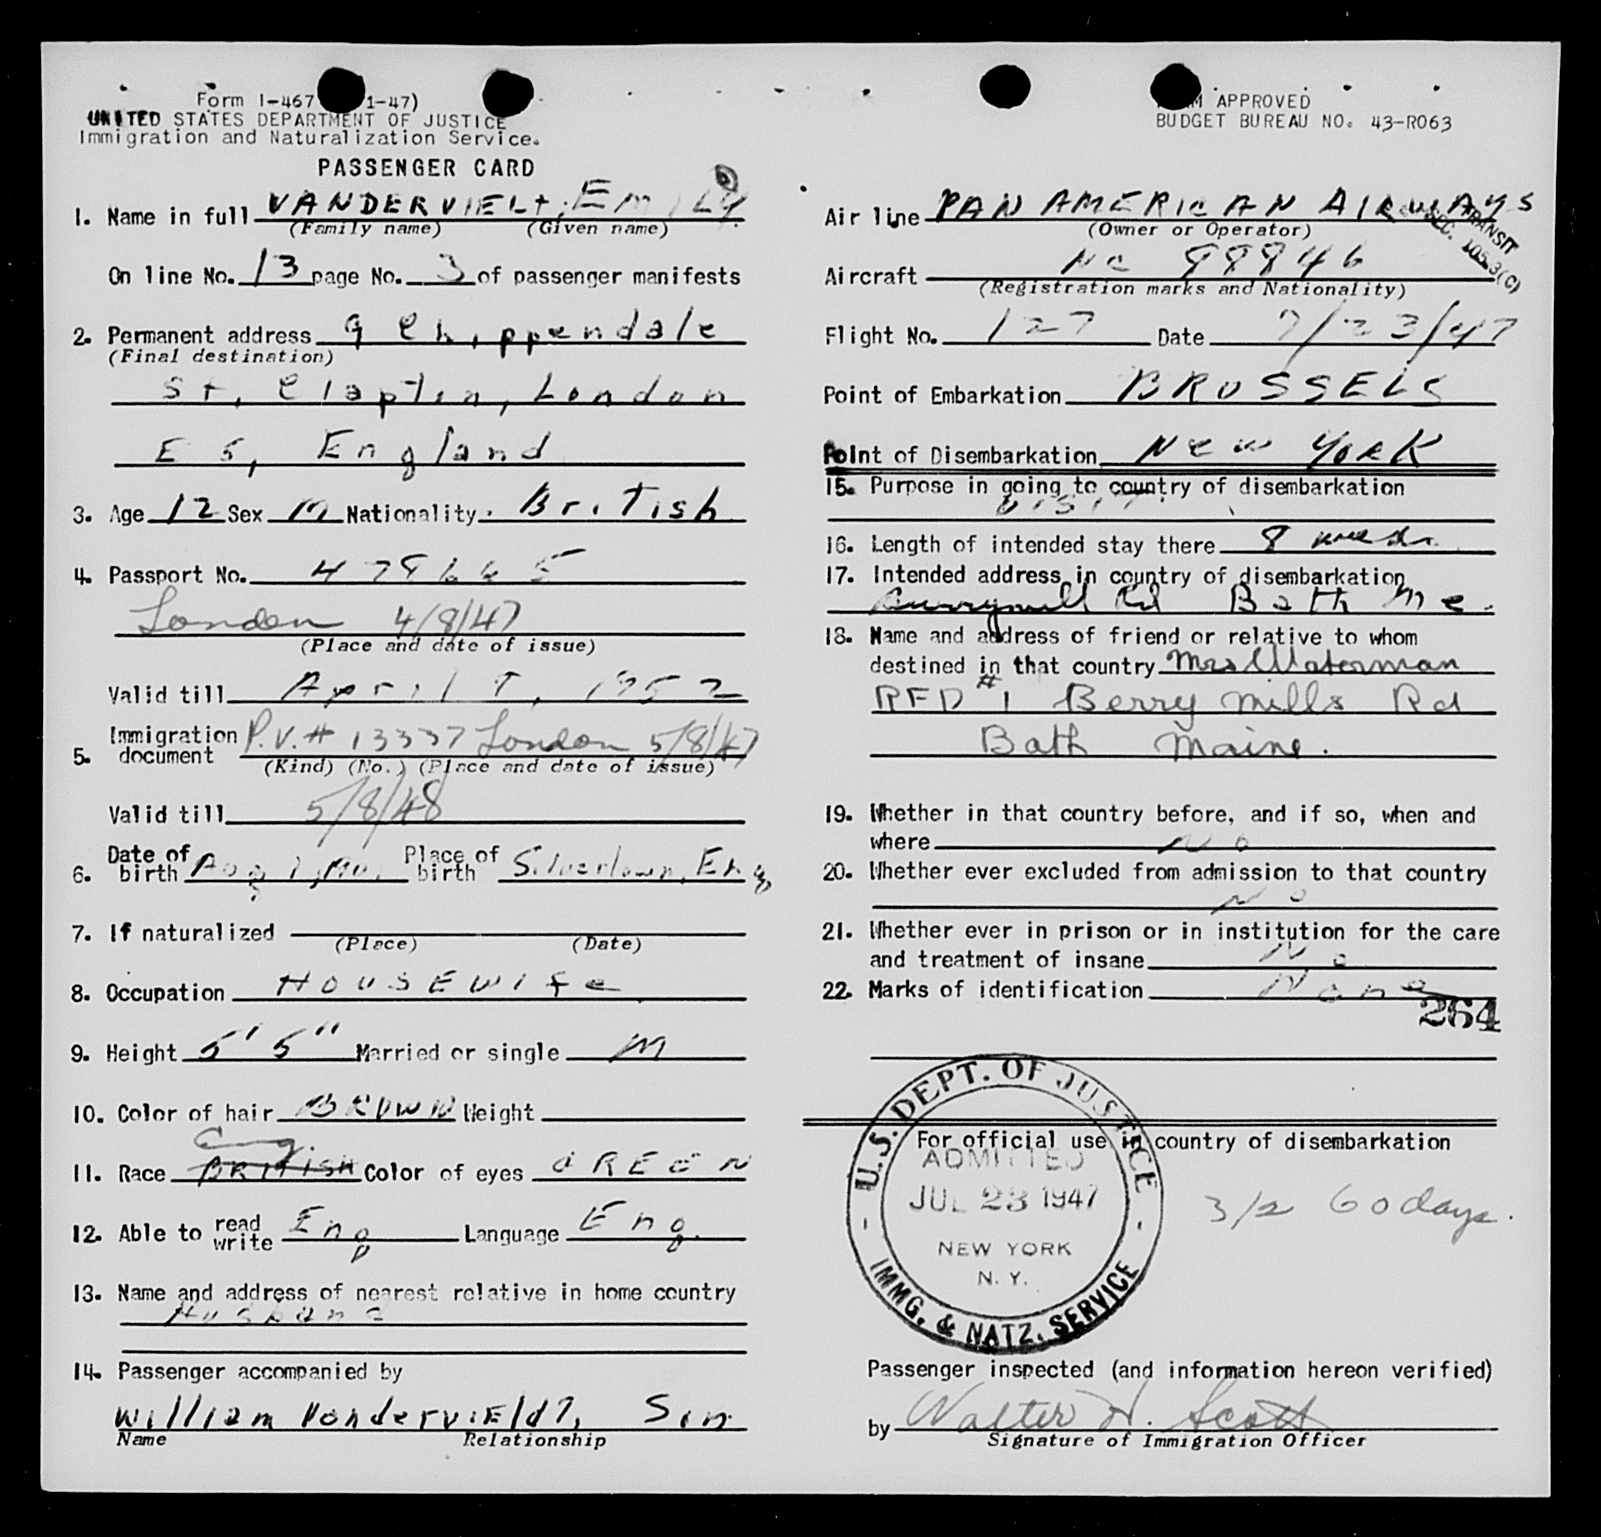 Form I-467 1-47)
UNITED STATES DEPARTMENT OF JUSTICE
Immigration and Naturalization Service.
PASSENGER CARD
1. Name in full VANDERVIELT, EMILY
(Family name) (Given name)
On line No. 13 page No. 3 of passenger manifests
2. Permanent address 9 Chippendale
(Final destination)
St, Clapton, London
E 5, England
3. Age 12 Sex M Nationality British
4. Passport No.
London 4/8/47
(Place and date of issue)
Valid till April 8, 1952
5. Immigration document P.V.# 13337 London 5/8/47
(Kind) (No.) (Place and date of issue)
Valid till 5/8/48
6. Date of birth Aug Place of birth Silvertown, Eng
7. If naturalized
(Place) (Date)
8. Occupation HOUSEWIFE
9. Height 5' 5" Married or single M
10. Color of hair BROWN Weight
Eng.
11. Race BRITISH Color of eyes GREEN
12. Able to read write Eng Language Eng.
13. Name and address of nearest relative in home country
Husband
14. Passenger accompanied by
William Vandervieldt, Son
Name Relationship
FORM APPROVED
BUDGET BUREAU NO. 43-R063
Air line PAN AMERICAN AIRWAYS
(Owner or Operator)
TRANSIT
SEC. 105.3(C)
Aircraft NC 88846
(Registration marks and Nationality)
Flight No. 127 Date 7/23/47
Point of Embarkation BRUSSELS
Point of Disembarkation New York
15. Purpose in going to country of disembarkation
visit
16. Length of intended stay there 8 weeks
17. Intended address in country of disembarkation
Rd Bath Me.
18. Name and address of friend or relative to whom
destined in that country Mrs Waterman
RFD #1 Berry Mills Rd
Bath Maine.
19. Whether in that country before, and if so, when and
where No
20. Whether ever excluded from admission to that country
No
21. Whether ever in prison or in institution for the care
and treatment of insane No
22. Marks of identification None
264
For official use in country of disembarkation
U.S. DEPT. OF JUSTICE
ADMITTED
JUL 23 1947
NEW YORK
N. Y.
IMMG. & NATZ. SERVICE
3/2 60 days.
Passenger inspected (and information hereon verified)
by Walter H. Scott
Signature of Immigration Officer